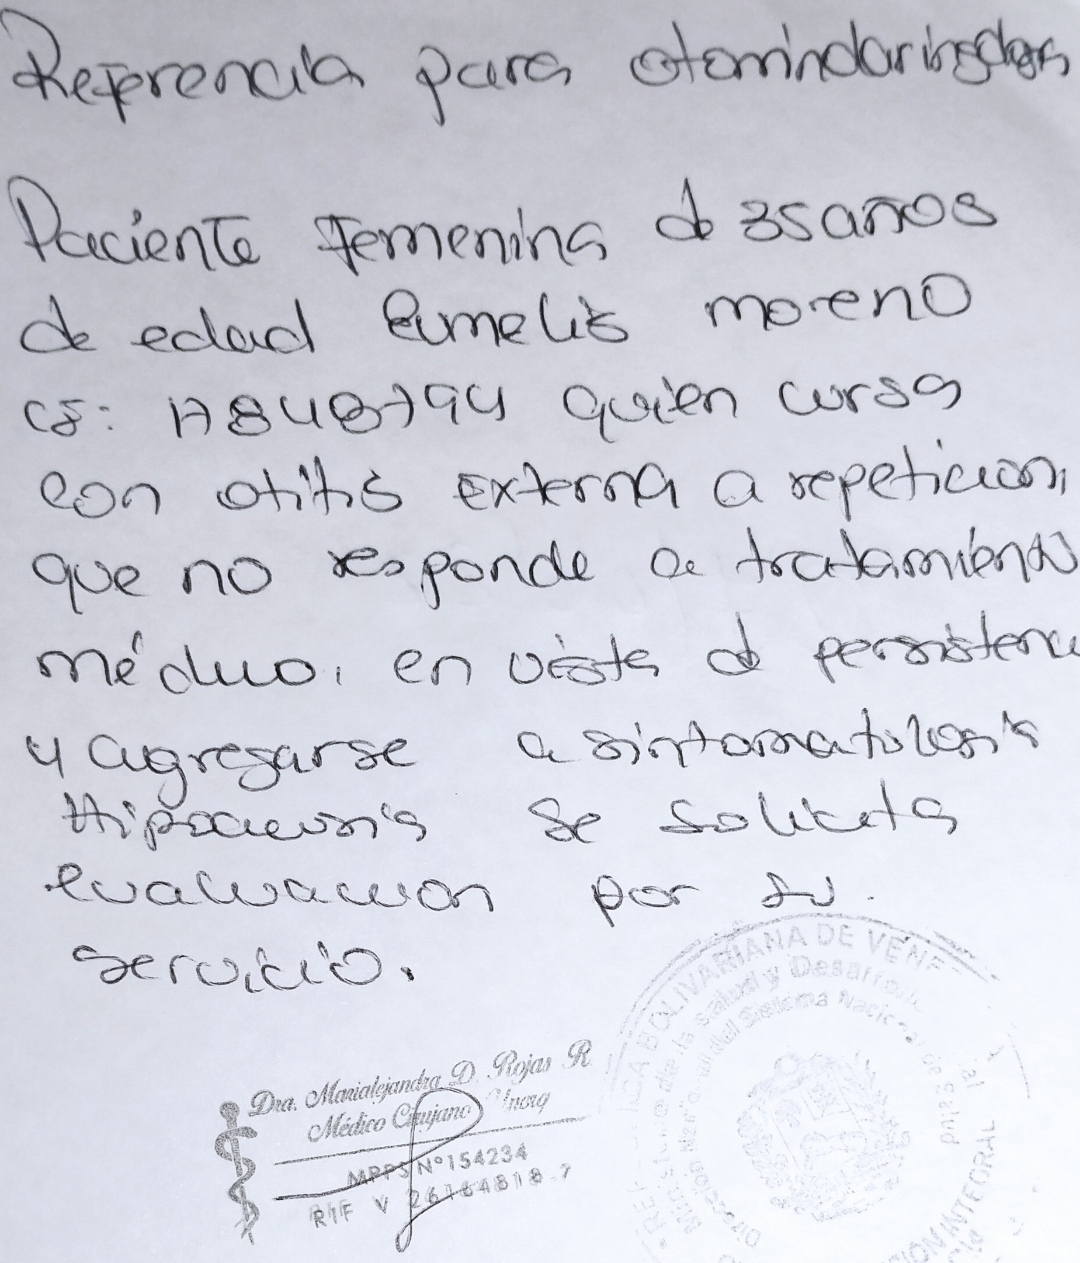 Referencia para otorrindaringologa
Paciente Femenina de 35 años
de edad Eumelis moreno
CI: 17848794 quien cursa
con otitis Externa a repeticion,
que no responde a tratamiento
médico, en vista de persistenc
y agregarse a sintomatologia
Hipoacusia Se Solicita
evaluacion por su
servicio.
Dra. Marialejandra D. Rojas R
Médico Cirujano
MPPS N°154234
RIF V 26164818-7
BOLIVARIANA DE VENE
de la Salud y Desarrollo
del Sistema Nacional de
INTEGRAL